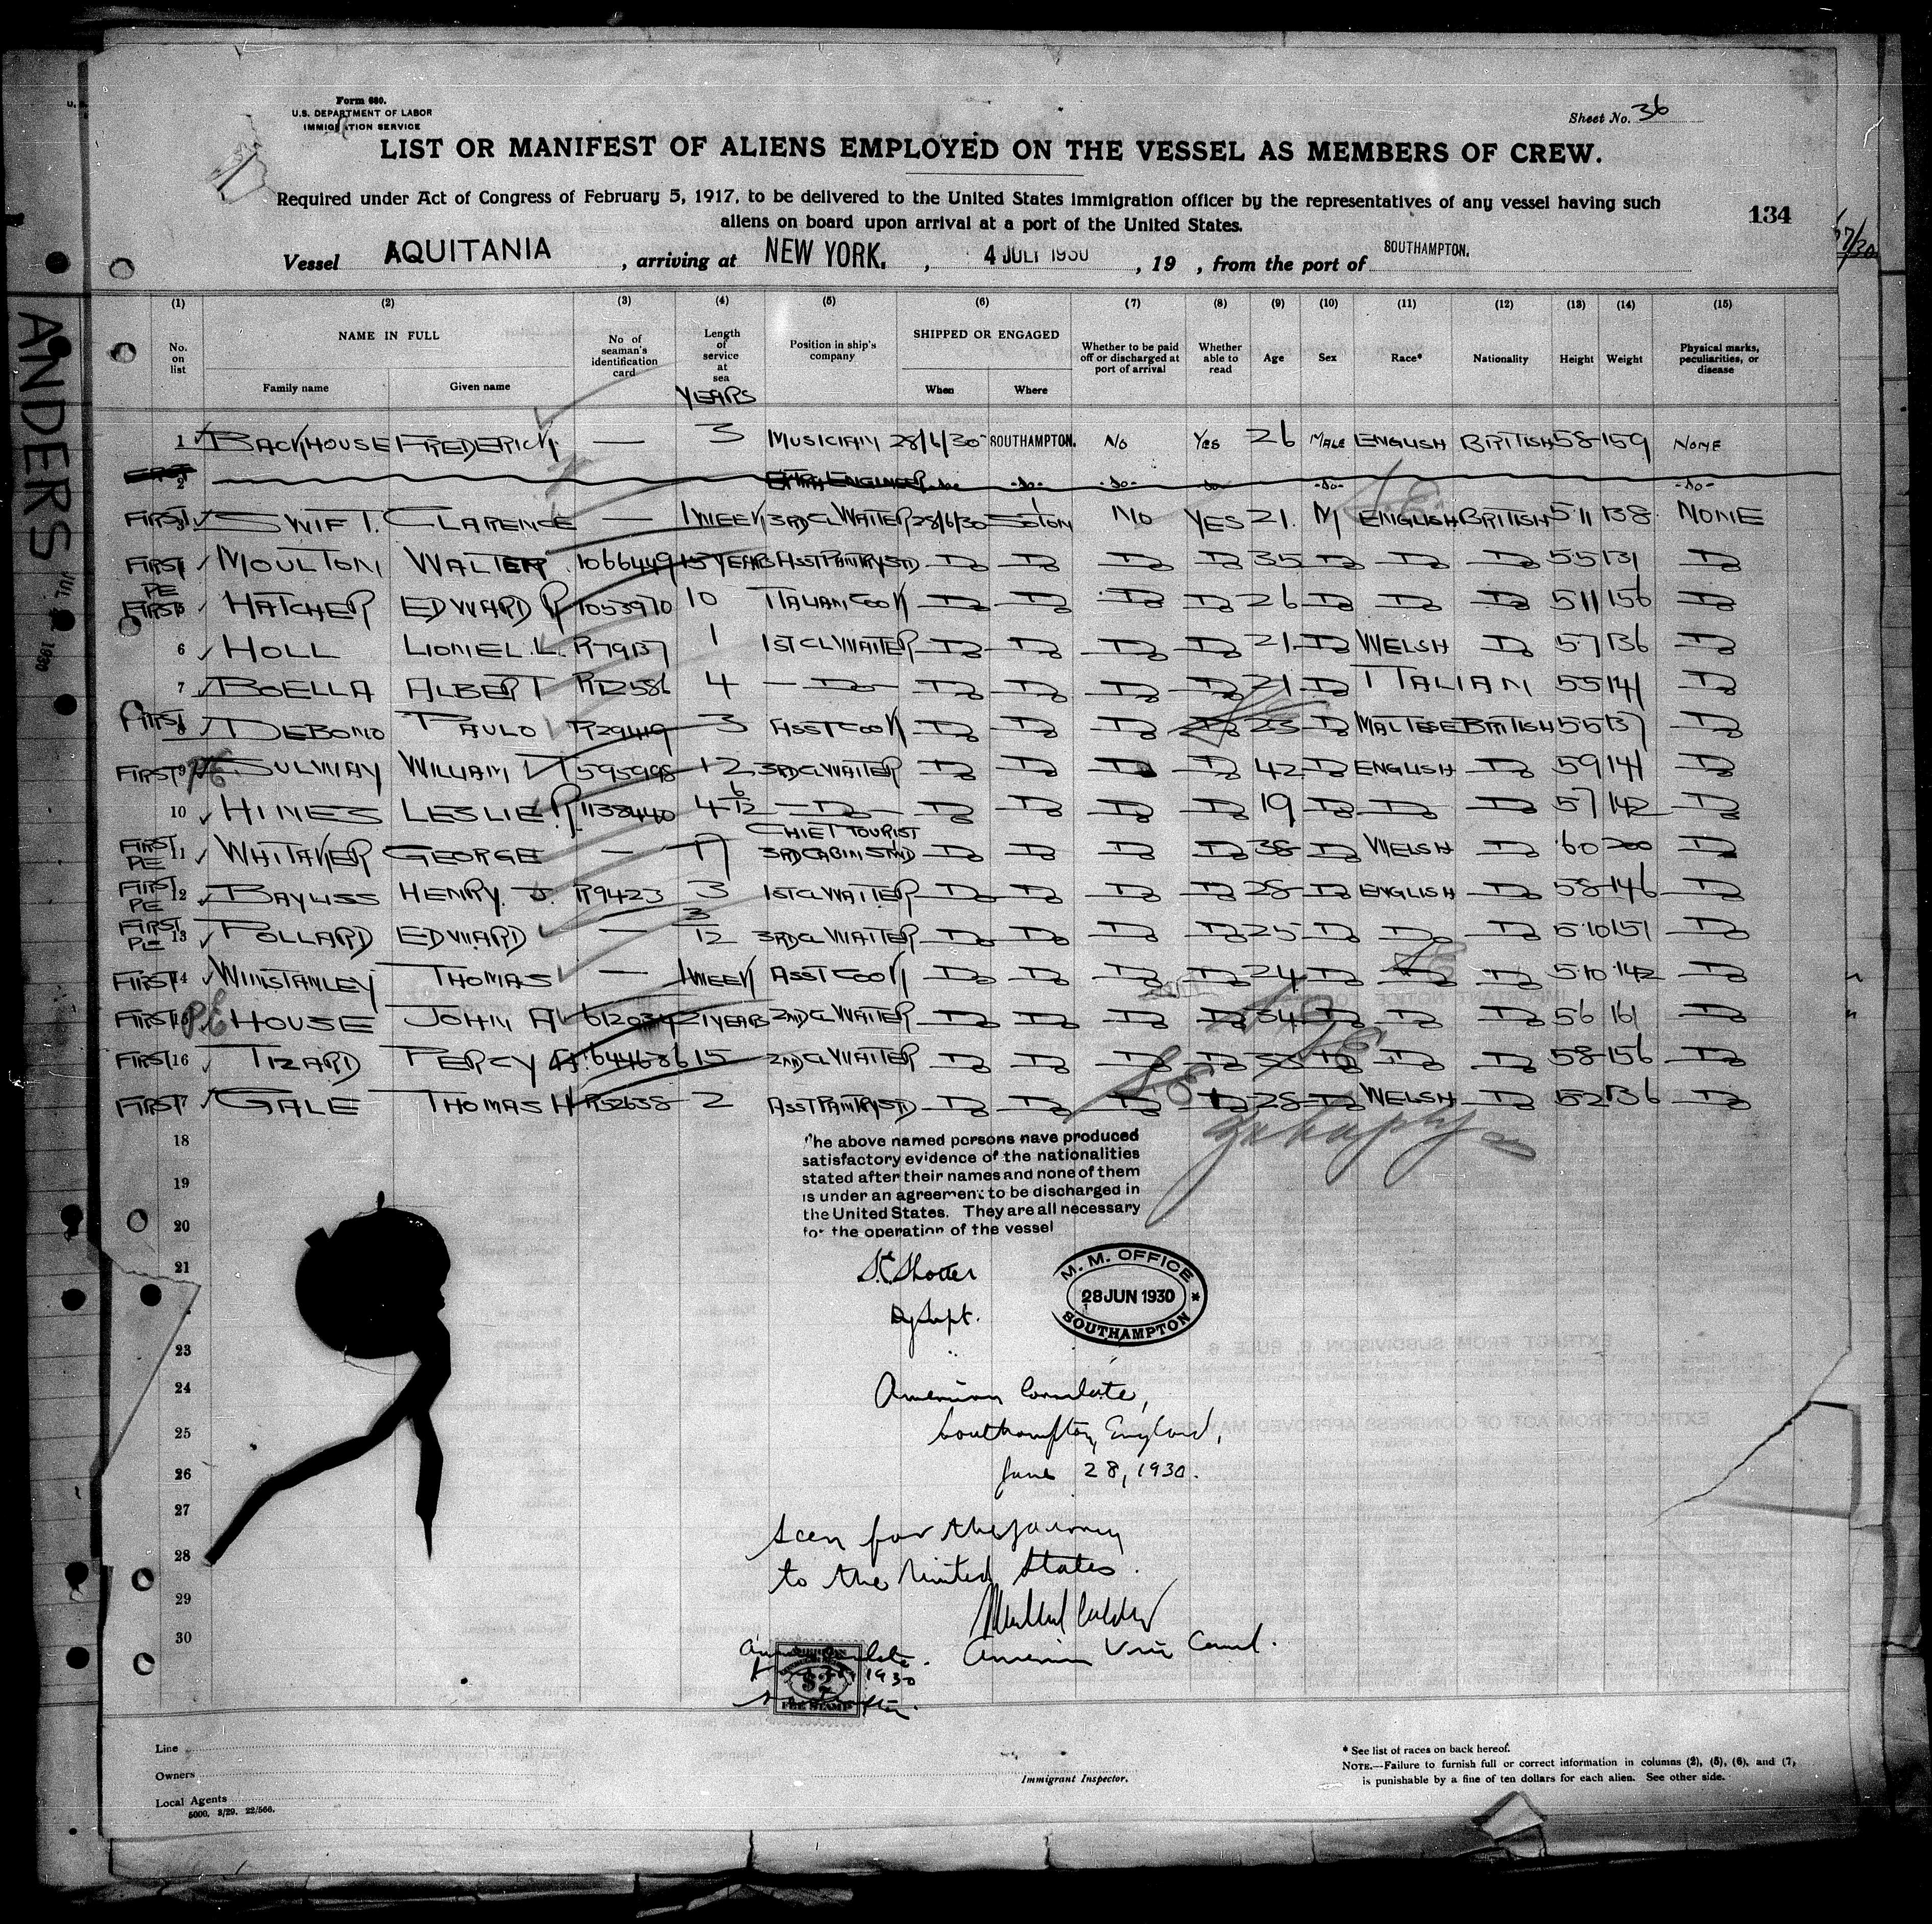 Form 680.
U.S. DEPARTMENT OF LABOR
IMMIGRATION SERVICE
Sheet No. 36
LIST OR MANIFEST OF ALIENS EMPLOYED ON THE VESSEL AS MEMBERS OF CREW.
Required under Act of Congress of February 5, 1917, to be delivered to the United States immigration officer by the representatives of any vessel having such
aliens on board upon arrival at a port of the United States.
134
Vessel AQUITANIA, arriving at NEW YORK., 4 JULY 1930, 19 , from the port of SOUTHAMPTON.
ANDERS
(1) (2) (3) (4) (5) (6) (7) (8) (9) (10) (11) (12) (13) (14) (15)
No. on list NAME IN FULL Family name Given name No of seaman's identification card Length of service at sea YEARS Position in ship's company SHIPPED OR ENGAGED When Where Whether to be paid off or discharged at port of arrival Whether able to read Age Sex Race* Nationality Height Weight Physical marks, peculiarities, or disease
1 BACKHOUSE FREDERICK — 3 MUSICIAN 28/6/30 SOUTHAMPTON. NO YES 26 MALE ENGLISH BRITISH 58 159 NONE
2 -do- -do- -do- -do-
FIRST SWIFT. CLARENCE — 1 WEEK 3RD CL WAITER 28/6/30 SOTON NO YES 21. M ENGLISH BRITISH 511 138 NONE
FIRST MOULTON WALTER 1066449 15 YEARS ASST PANTRY STD Do Do Do Do 35 Do Do Do 55 131 Do
FIRST PE HATCHER EDWARD R 1053970 10 ITALIAN COOK Do Do Do Do 26 Do Do Do 511 156 Do
6 HOLL LIONEL L. R79137 1 1ST CL WAITER Do Do Do Do 21 Do WELSH Do 57 136 Do
7 BOELLA ALBERT R12586 4 — Do — Do Do Do Do 21 Do ITALIAN 55 141 Do
FIRST 8 DEBONO PAULO R29419 3 ASST COOK Do Do Do Do 23 Do MALTESE BRITISH 55 137 Do
FIRST 9 PE SULWAY WILLIAM T 595998 12 3RD CL WAITER Do Do Do Do 42 Do ENGLISH Do 59 141 Do
10 HINES LESLIE R 1138440 4 6/12 — Do — Do Do Do Do 19 Do Do Do 57 142 Do
FIRST PE 11 WHITAKER GEORGE — 17 CHIEF TOURIST 3RD CABIN STWD Do Do Do Do 38 Do WELSH Do 60 200 Do
FIRST PE 12 BAYLISS HENRY. J. R9423 3 1ST CL WAITER Do Do Do Do 28 Do ENGLISH Do 58 146 Do
FIRST PE 13 POLLARD EDWARD — 3/12 3RD CL WAITER Do Do Do Do 25 Do Do Do 5.10 151 Do
FIRST 14 WINSTANLEY THOMAS — 1 WEEK ASST COOK Do Do Do Do 24 Do Do Do 5.10 142 Do
FIRST PE HOUSE JOHN A 612034 21 YEARS 2ND CL WAITER Do Do Do Do 34 Do Do Do 56 161 Do
FIRST 16 TIZARD PERCY A. 644686 15 2ND CL WAITER Do Do Do Do Do Do Do 58 156 Do
FIRST GALE THOMAS H R52638 2 ASST PANTRY STD Do Do Do Do 28 Do WELSH Do 52 136 Do
18
The above named persons have produced
satisfactory evidence of the nationalities
stated after their names and none of them
is under an agreement to be discharged in
the United States. They are all necessary
for the operation of the vessel
19
20
21
Dy Supt.
M. M. OFFICE
28 JUN 1930
SOUTHAMPTON
23
24
American Consulate,
25
Southampton, England,
26
June 28, 1930.
27
Seen for the journey
28
to the United States.
29
30
American Vice Consul.
1930
$2
FEE STAMP
Line
Owners
Local Agents
5000. 3/29. 22/566.
Immigrant Inspector.
* See list of races on back hereof.
NOTE.—Failure to furnish full or correct information in columns (2), (5), (6), and (7),
is punishable by a fine of ten dollars for each alien. See other side.